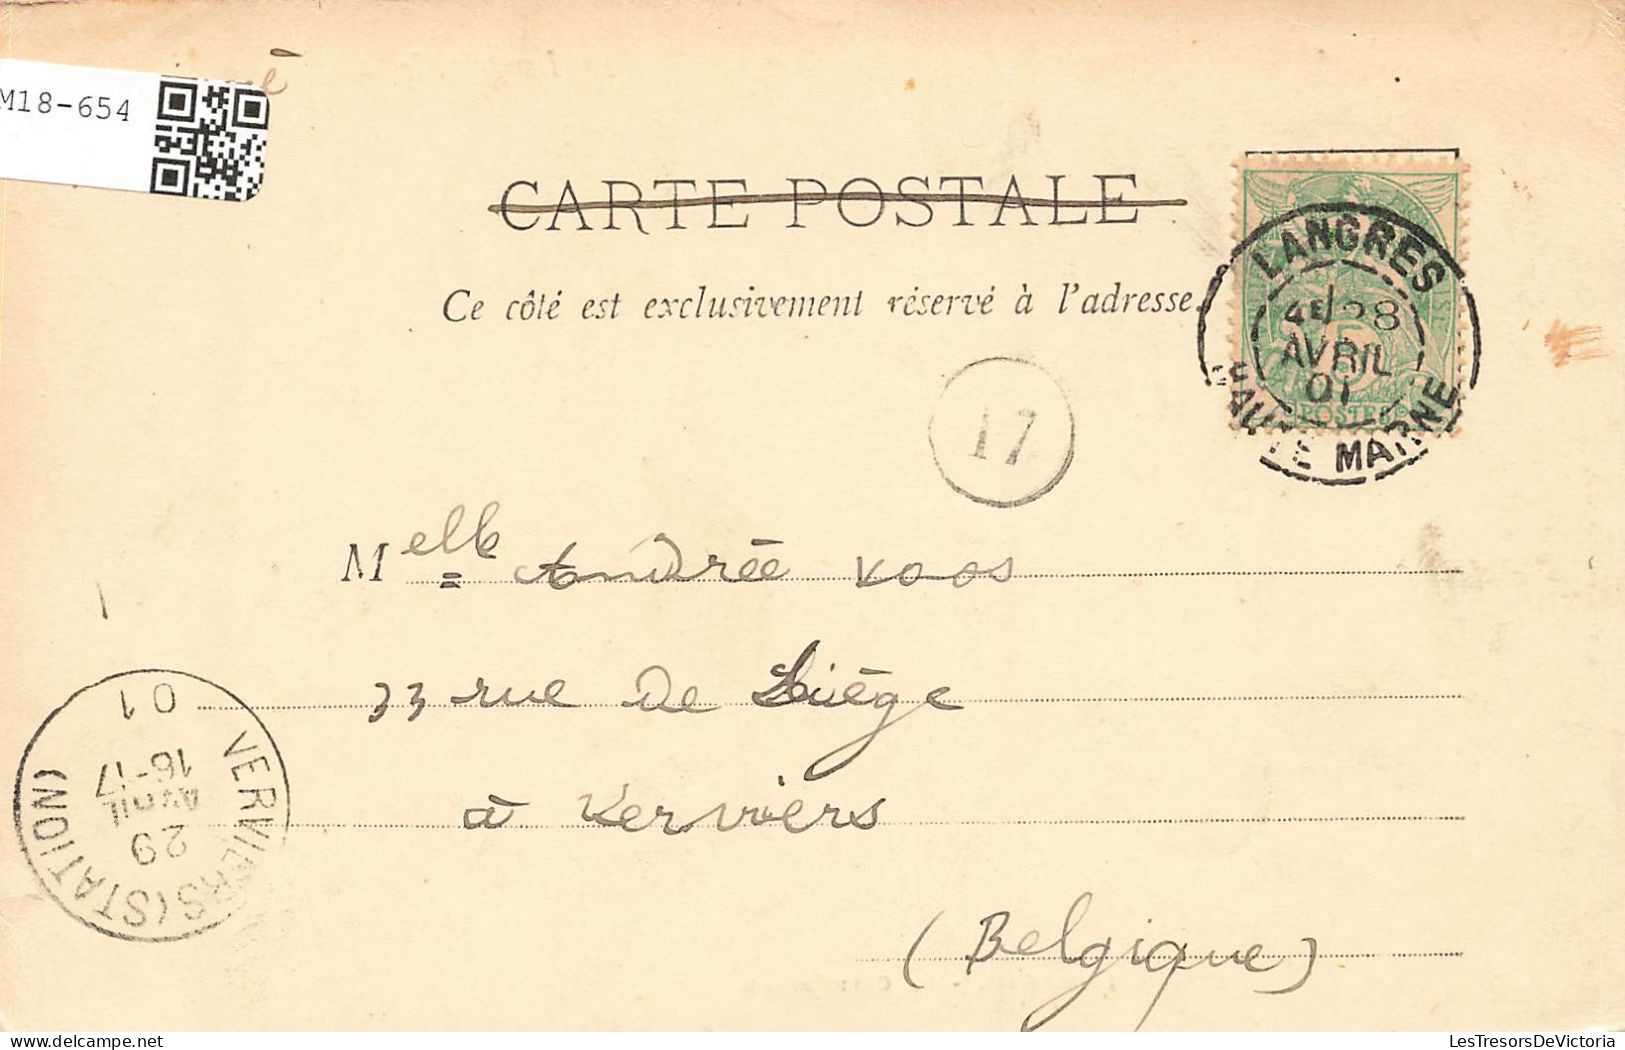 M18-654
CARTE POSTALE
Ce côté est exclusivement réservé à l'adresse.
LANGRES
28
AVRIL
01
HAUTE MARNE
POSTES
17
Melle Andrée Voos
33 rue De Liège
à Verviers
(Belgique)
VERVIERS (STATION)
29
AVRIL
16-17
01
LesTresorsDeVictoria